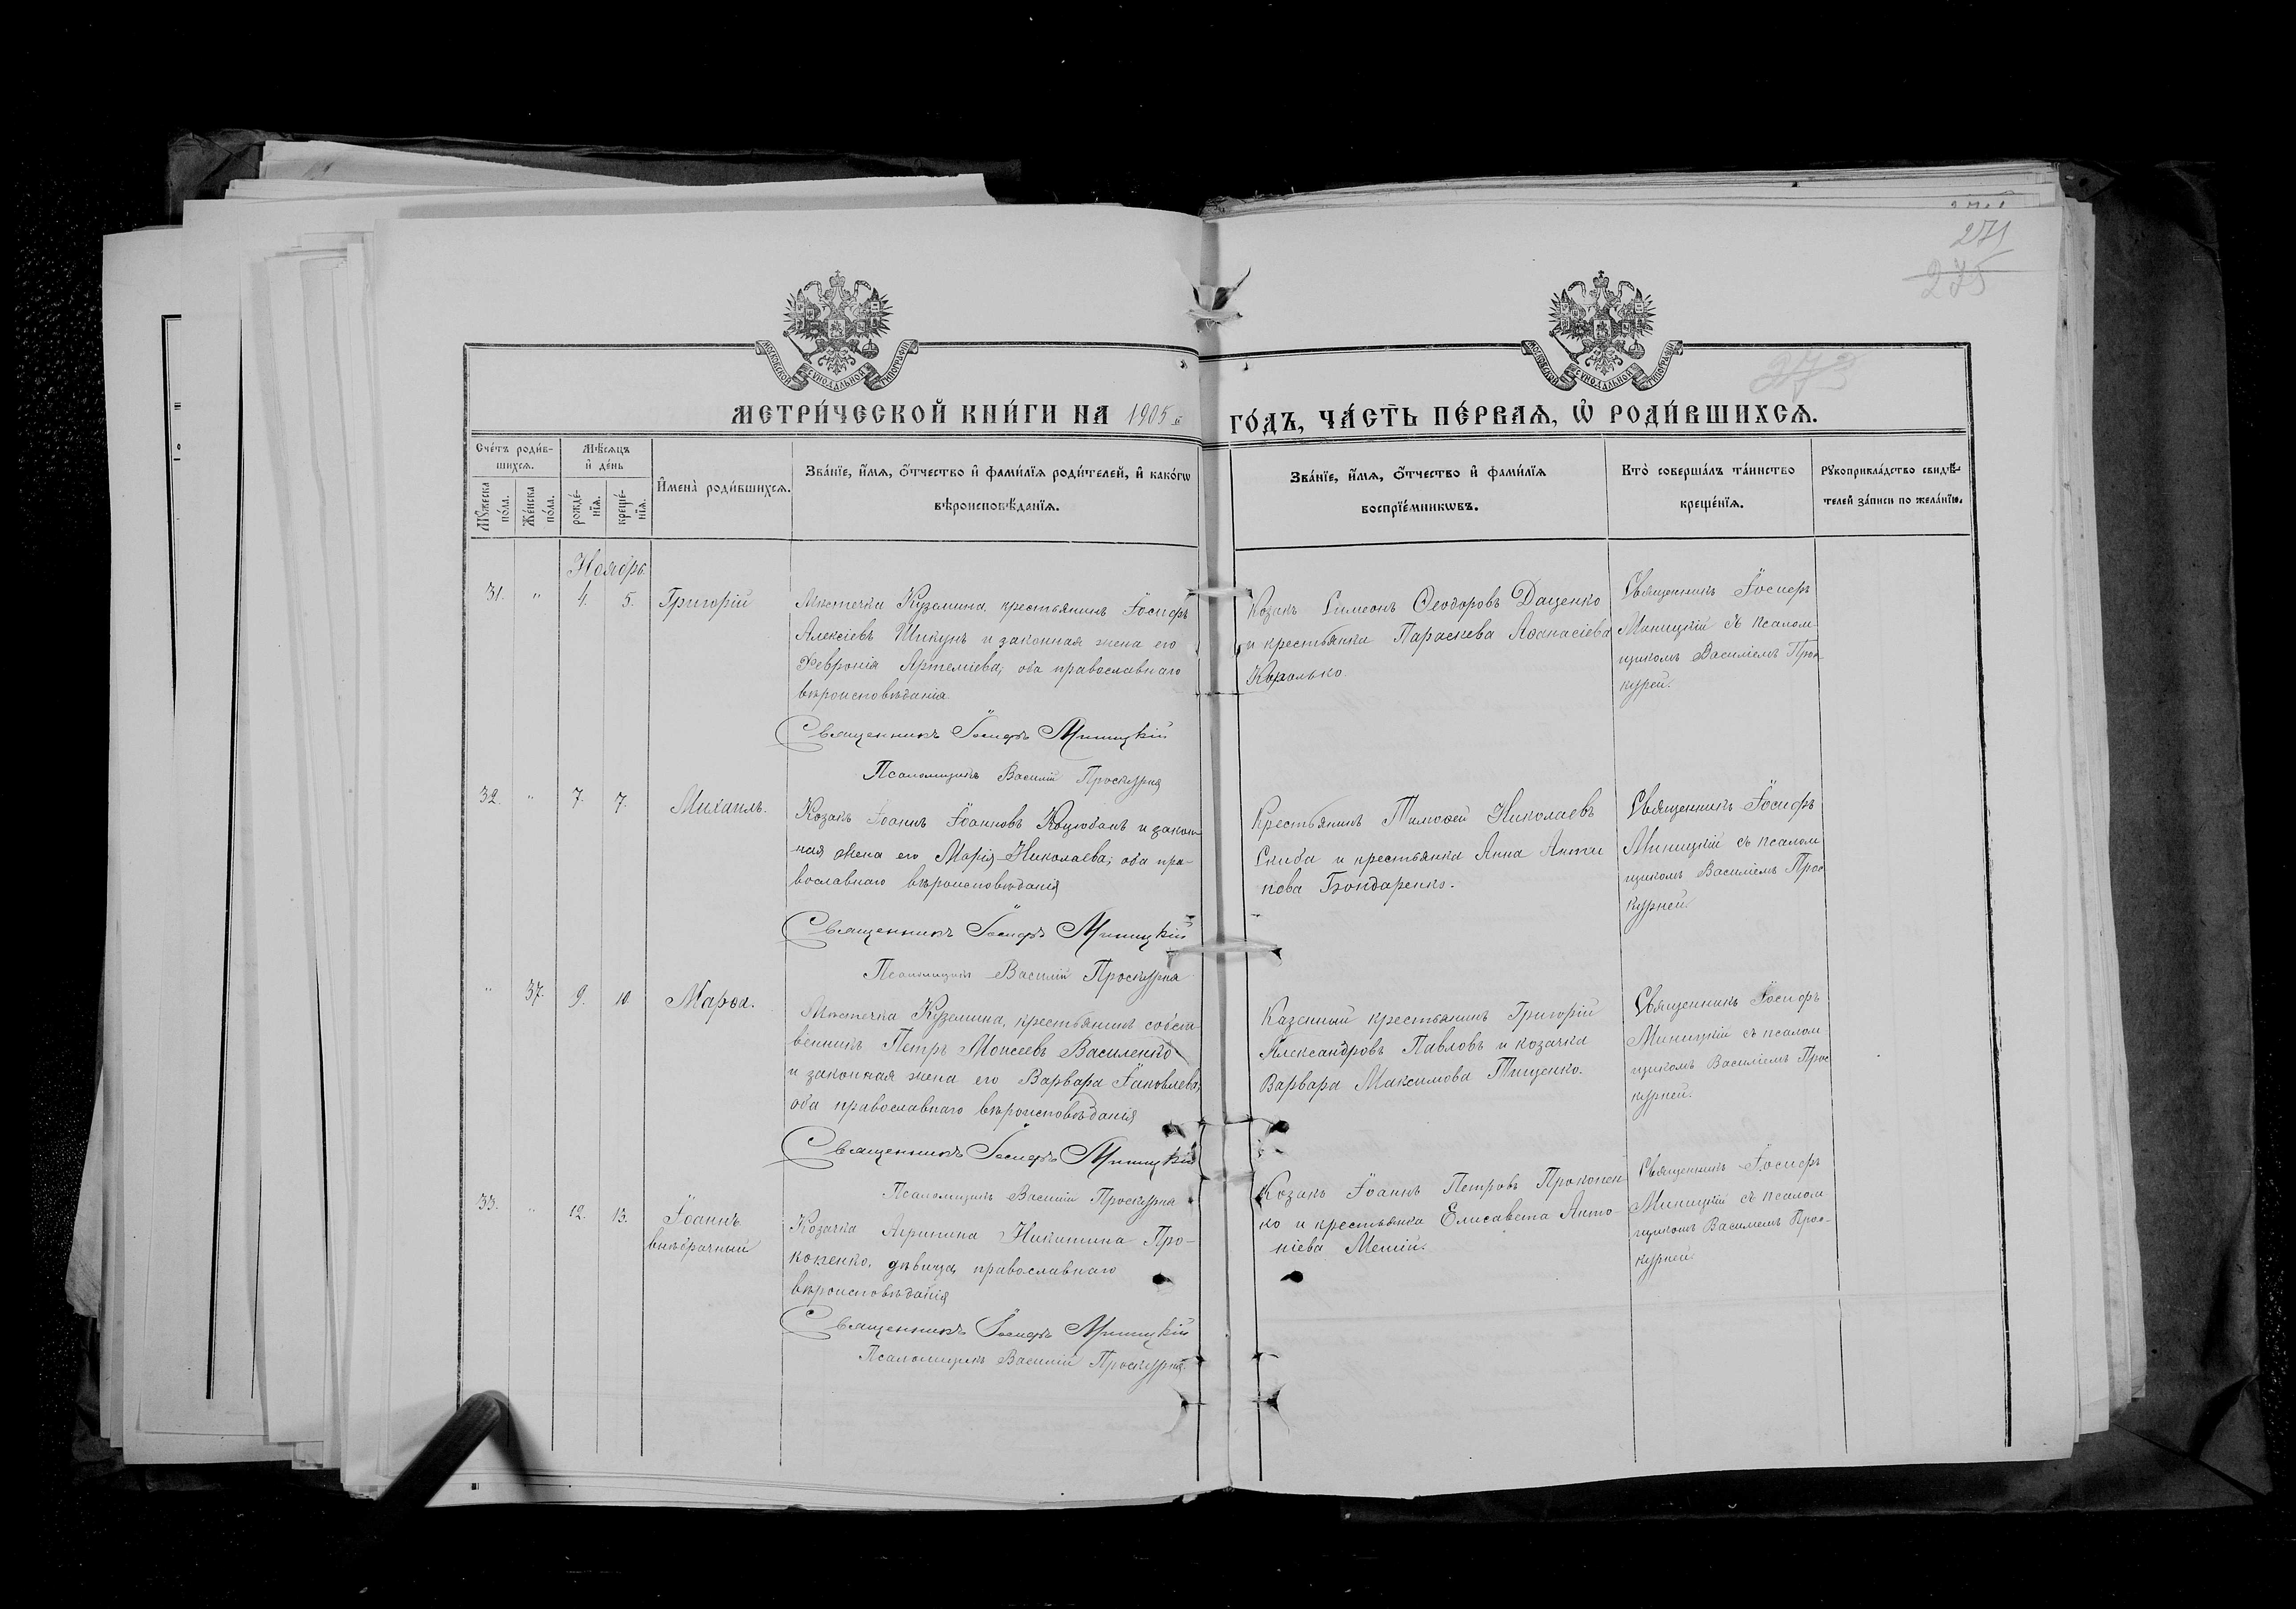 271
275
273
МОСКОВСКОЙ СѴНОДАЛЬНОЙ ТИПОГРАФІИ
МОСКОВСКОЙ СѴНОДАЛЬНОЙ ТИПОГРАФІИ
МЕТРИ́ЧЕСКОЙ КНИ́ГИ НА 1905 й
ГО́ДЪ, ЧА́СТЬ ПЕ́РВАѦ, Ѡ҆ РОДИ́ВШИХСѦ.
Сче́тъ роди́в-
шихсѧ.
Мꙋ́жеска
по́ла.
Же́нска
по́ла.
Мѣ́сѧцъ
и҆ де́нь
рожде́-
нїѧ.
креще́-
нїѧ.
И҆мена̀ роди́вшихсѧ.
Зва́нїе, и҆́мѧ, ѻ҆́тчество и҆ фами́лїѧ роди́телей, и҆ како́гѡ
вѣроисповѣ́данїѧ.
Зва́нїе, и҆́мѧ, ѻ҆́тчество и҆ фами́лїѧ
воспрїе́мникѡвъ.
Кто̀ соверша́лъ та́инство
креще́нїѧ.
Рꙋкоприкла́дство свидѣ́-
телей за́писи по жела́нїю.
Ноябрь
31. " 4. 5. Григорій
Мѣстечка Куземина, крестьянинъ Іосифъ
Алексіевъ Шикунъ и законная жена его
Февронія Артеміева; оба православнаго
вѣроисповѣданія
Священникъ Іосифъ Миницкій
Псаломщикъ Василій Проскурня
Козакъ Симеонъ Ѳеодоровъ Даценко
и крестьянка Параскева Аѳанасіева
Священникъ Іосифъ
Миницкій съ псалом-
щикомъ Василіемъ
32. " 7. 7. Михаилъ.
Козакъ Іоаннъ Іоанновъ Коцюбанъ и закон-
ная жена его Марія Николаева; оба пра-
вославнаго вѣроисповѣданія
Священникъ Іосифъ Миницкій
Псаломщикъ Василій Проскурня
Крестьянинъ Тимоѳей Николаевъ
Скиба и крестьянка Анна Анти
пова Бондаренко.
Священникъ Іосифъ
Миницкій съ псалом
щикомъ Василіемъ Прос
курней.
" 37. 9. 10. Марѳа.
Мѣстечка Куземина, крестьянинъ собст-
венникъ Петръ Моисеевъ Василенко
и законная жена его Варвара Іаковлева;
оба православнаго вѣроисповѣданія
Священникъ Іосифъ Миницкій
Псаломщикъ Василій Проскурня
Казенный крестьянинъ Григорій
Александровъ Павловъ и козачка
Варвара Максимова Тищенко.
Священникъ Іосифъ
Миницкій съ псалом
щикомъ Василіемъ Прос
курней.
33. " 12. 13. Іоаннъ
внѣбрачный
Козачка Агрипина Никитина Про-
копенко, дѣвица, православнаго
вѣроисповѣданія
Священникъ Іосифъ Миницкій
Псаломщикъ Василій Проскурня.
Козакъ Іоаннъ Петровъ Прокопен
ко и крестьянка Елисавета Анто-
ніева
Священникъ Іосифъ
Миницкій съ псалом
щикомъ Василіемъ Прос-
курней.